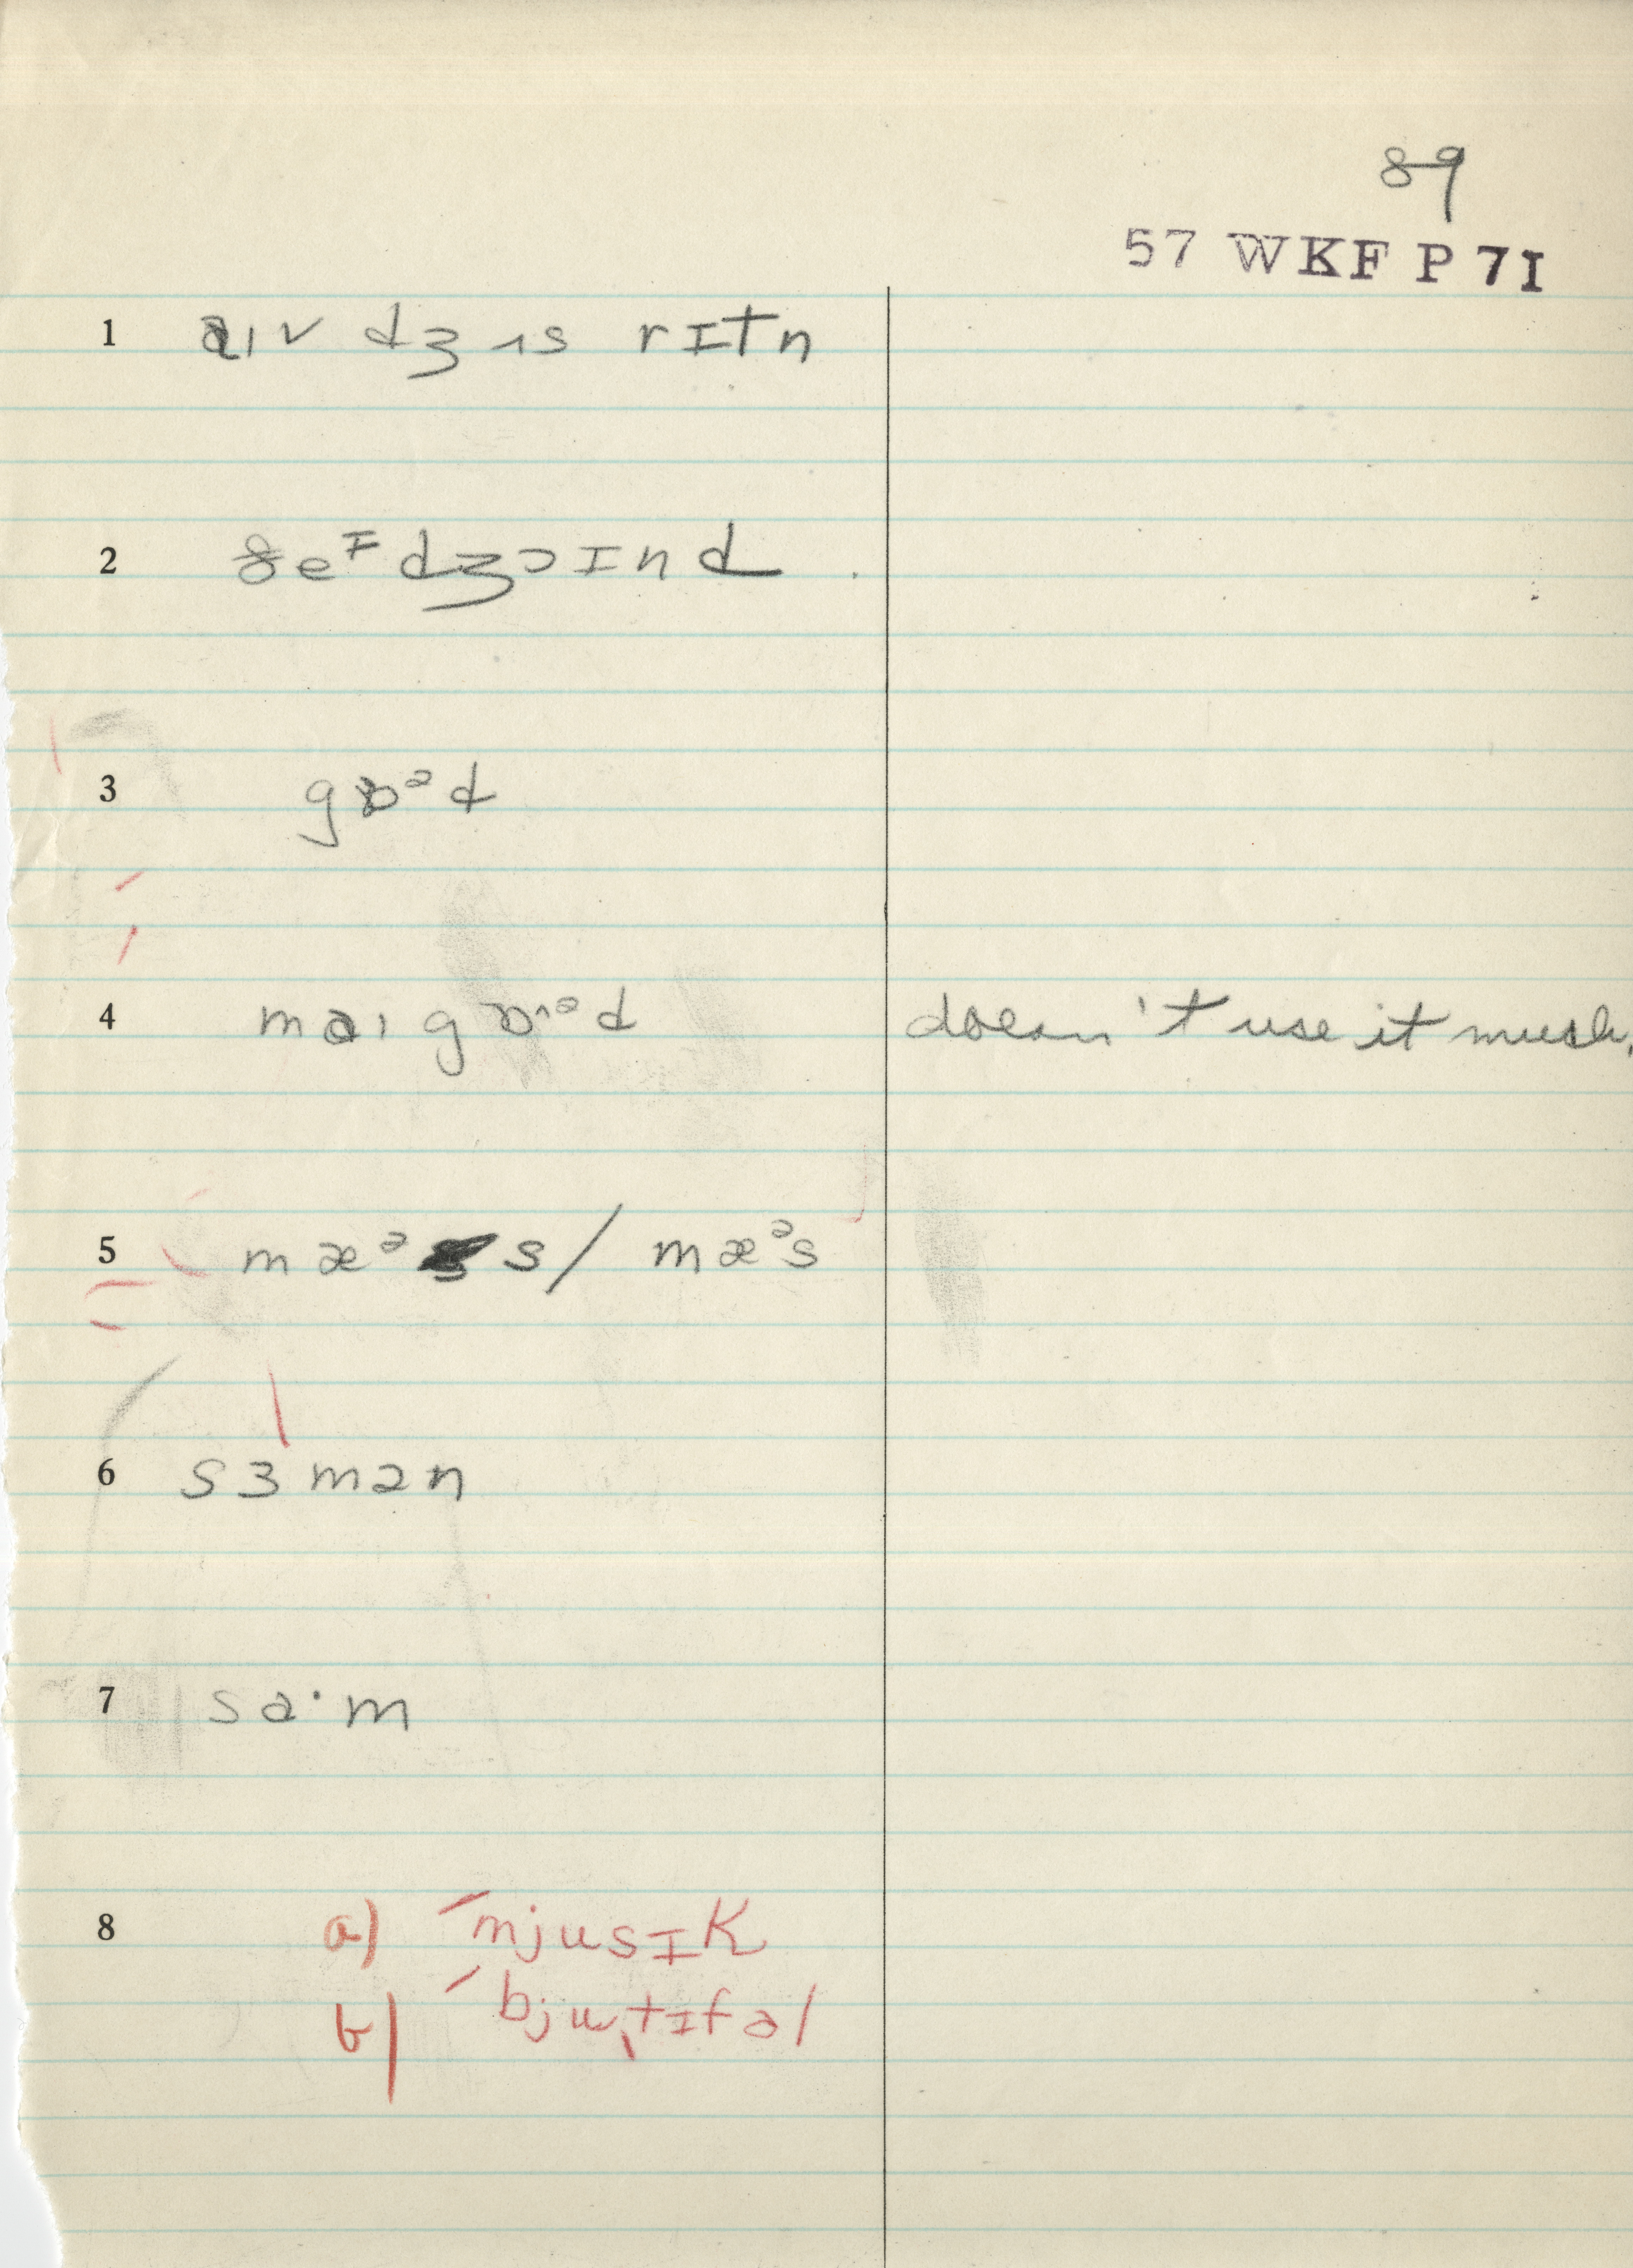 89
57 WKF P 7I
1 aɪv dʒʌs rɪtn
2 ðeᶦ dʒɔɪnd
3 gɒᵊd
4 maɪ gɒˑᵊd doesn't use it much.
5 mæᵊ s / mæᵊs
6 sɜmən
7 sa·m
8 a) ˊmjusɪk
b) ˊbjuˌtɪfəl